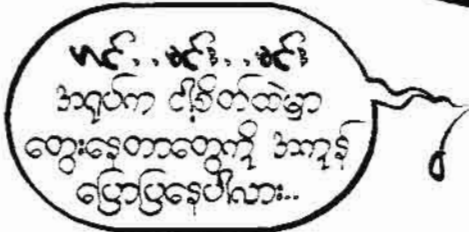 ဟင်..မင်း..မင်း
အရုပ်က ငါ့စိတ်ထဲမှာ
တွေးနေတာတွေကို အကုန်
ပြောပြနေပါလား..